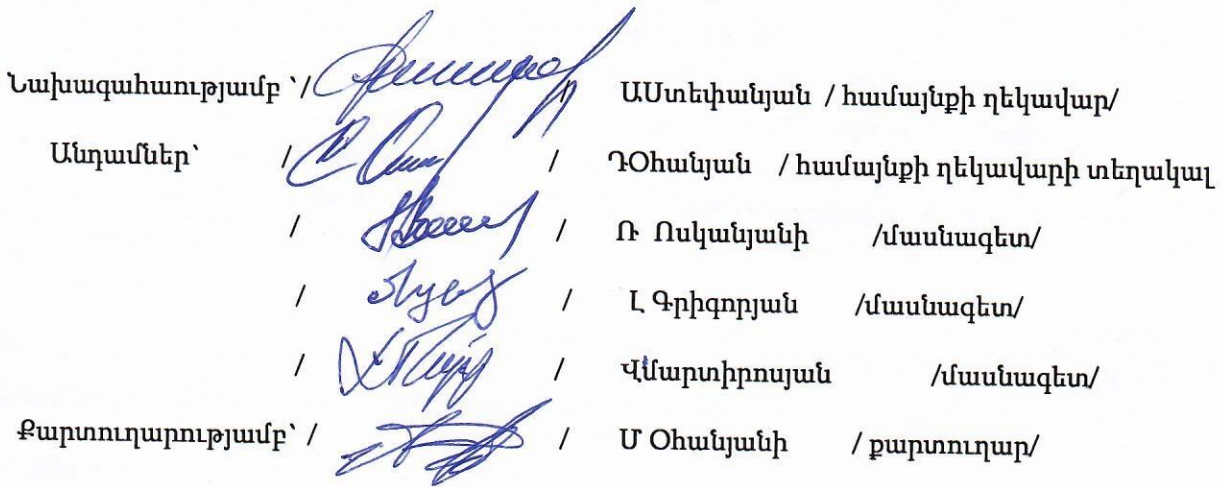 Նախագահաությամբ ՝/ / ԱՍտեփանյան / համայնքի ղեկավար/
Անդամներ՝ / / ԴՕհանյան / համայնքի ղեկավարի տեղակալ
/ / Ռ Ոսկանյանի /մասնագետ/
/ / Լ Գրիգորյան /մասնագետ/
/ / Վմարտիրոսյան /մասնագետ/
Քարտուղարությամբ՝ / / Մ Օհանյանի / քարտուղար/